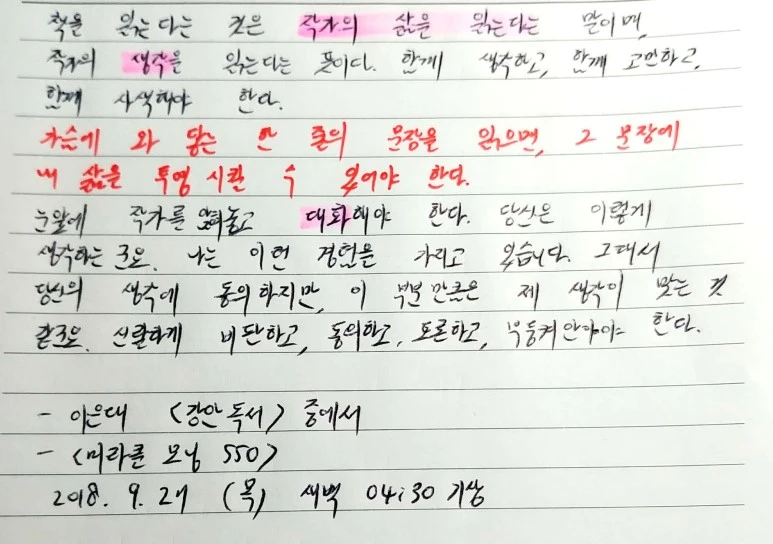 책을 읽는다는 것은 작가의 삶을 읽는다는 말이며,
작가의 생각을 읽는다는 뜻이다. 함께 생각하고, 함께 고민하고,
함께 사색해야 한다.
가슴에 와 닿는 한 줄의 문장을 읽으면, 그 문장에
내 삶을 투영 시킬 수 있어야 한다.
눈앞에 작가를 앉혀놓고 대화해야 한다. 당신은 이렇게
생각하는군요. 나는 이런 경험을 가지고 있습니다. 그래서
당신의 생각에 동의하지만, 이 부분 만큼은 제 생각이 맞는 것
같군요. 신랄하게 비판하고, 동의하고, 토론하고, 부둥켜안아야 한다.
- 이은대 <강안독서> 중에서
- <미라클 모닝 550>
2018. 9. 27 (목) 새벽 04:30 기상